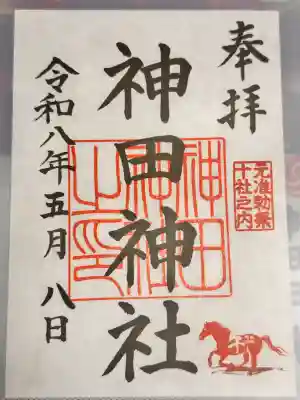 奉拝
元准勅祭
十社之内
神田神社
神田
神社
之印
令和八年五月八日